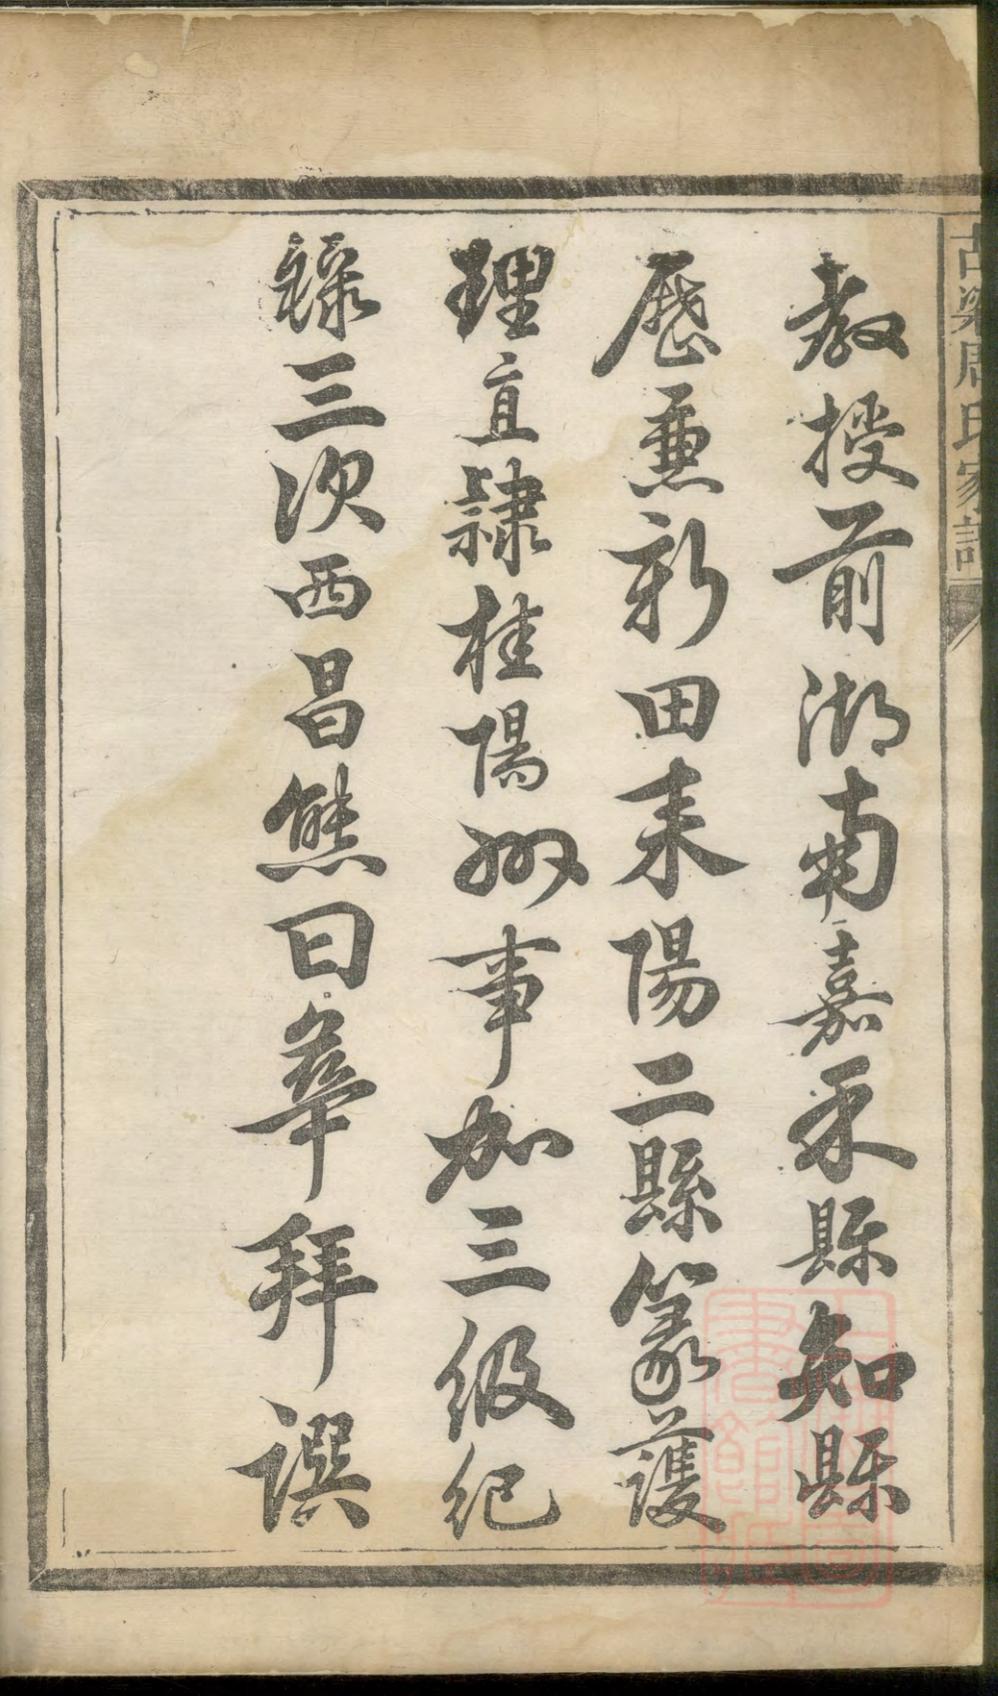 古梁周氏家譜
教授前湖南嘉禾縣知縣
歷兼新田耒陽二縣篆護
理直隸桂陽州事加三級紀
錄三次西昌熊曰華拜譔